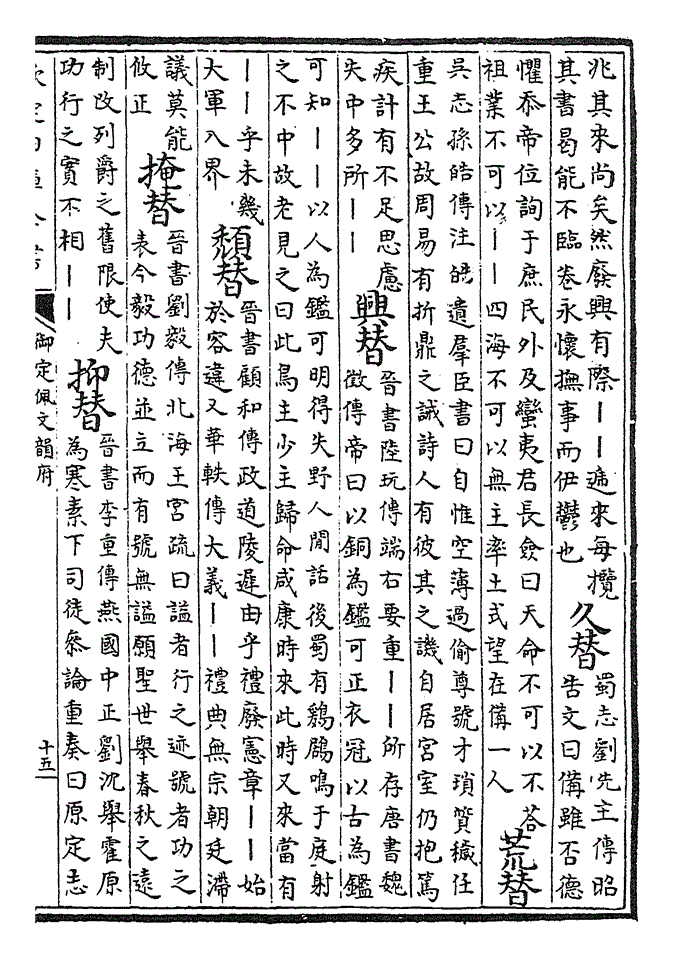 兆其來尚矣然廢興有際丨丨遞來每攬
其書曷能不臨卷永懷撫事而伊鬱也
久替
蜀志劉先主傳昭
告文曰備雖否德
懼忝帝位詢于庶民外及蠻夷君長僉曰天命不可以不荅
祖業不可以丨丨四海不可以無主率土式望在備一人
荒替
吳志孫皓傳注皓遺羣臣書曰自惟空薄過偷尊號才瑣質穢任
重王公故周易有折鼎之誡詩人有彼其之譏自居宮室仍抱篤
疾計有不足思慮
失中多所丨丨
興替
晉書陸玩傳端右要重丨丨所存唐書魏
徵傳帝曰以銅為鑑可正衣冠以古為鑑
可知丨丨以人為鑑可明得失野人閒話後蜀有鷄鶋鳴于庭射
之不中故老見之曰此鳥主少主歸命咸康時來此時又來當有
丨丨乎未幾
大軍入界
頹替
晉書顧和傳政道陵遲由乎禮廢憲章丨丨始
於容違又華軼傳大義丨丨禮典無宗朝廷滯
議莫能
攸正
掩替
晉書劉毅傳北海王宮疏曰謚者行之迹號者功之
表今毅功德並立而有號無謚願聖世舉春秋之遠
制改列爵之舊限使夫
功行之實不相丨丨
抑替
晉書李重傳燕國中正劉沈舉霍原
為寒素下司徒參論重奏曰原定志
欽定四庫全書
御定佩文韻府
十五